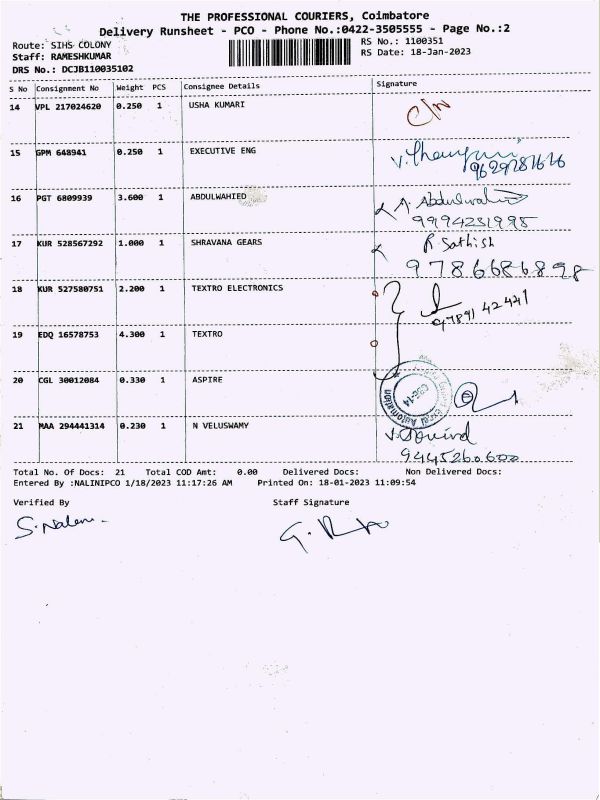 THE PROFESSIONAL COURIERS, Coimbatore
Delivery Runsheet - PCO - Phone No.:0422-3505555 - Page No.:2
Route: SIHS COLONY
RS No.: 1100351
Staff: RAMESHKUMAR
RS Date: 18-Jan-2023
DRS No.: DCJB110035102
S No Consignment No Weight PCS Consignee Details Signature
14 VPL 217024620 0.250 1 USHA KUMARI C/N
15 GPM 648941 0.250 1 EXECUTIVE ENG
16 PGT 6809939 3.600 1 ABDULWAHIED A. Abdulwahid
9994231995
17 KUR 528567292 1.000 1 SHRAVANA GEARS R Sathish
9786686898
18 KUR 527580751 2.200 1 TEXTRO ELECTRONICS
9789142441
19 EDQ 16578753 4.300 1 TEXTRO
20 CGL 30012084 0.330 1 ASPIRE
CBE-14
21 MAA 294441314 0.230 1 N VELUSWAMY
9445260600
Total No. Of Docs: 21 Total COD Amt: 0.00 Delivered Docs: Non Delivered Docs:
Entered By :NALINIPCO 1/18/2023 11:17:26 AM Printed On: 18-01-2023 11:09:54
Verified By Staff Signature